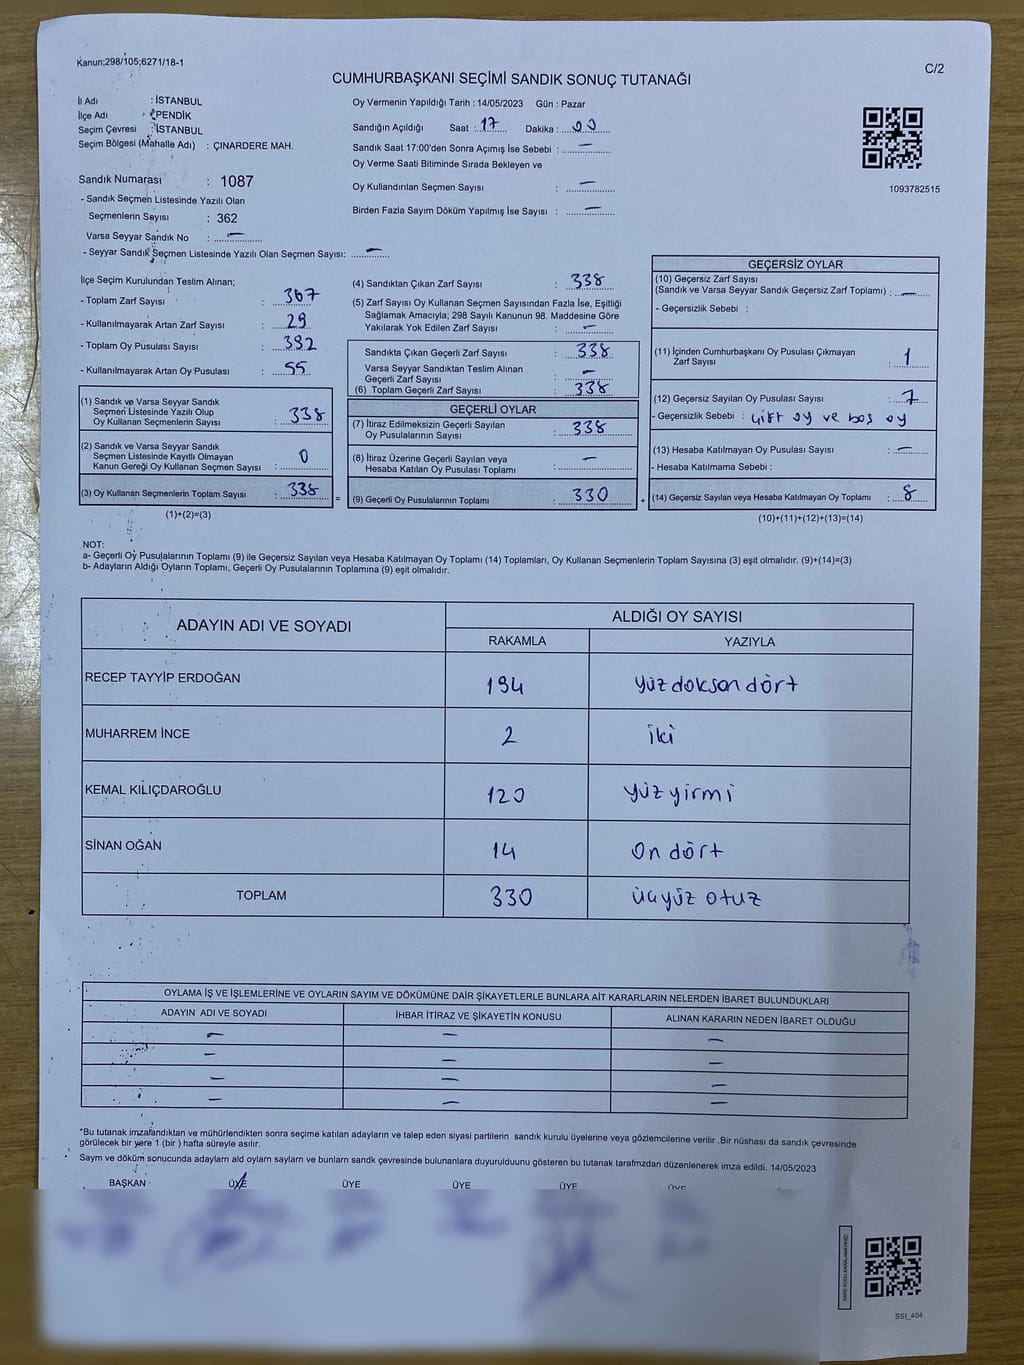 Kanun;298/105;6271/18-1
C/2
CUMHURBAŞKANI SEÇİMİ SANDIK SONUÇ TUTANAĞI
İl Adı : İSTANBUL
İlçe Adı : PENDİK
Seçim Çevresi : İSTANBUL
Seçim Bölgesi (Mahalle Adı) : ÇINARDERE MAH.
Sandık Numarası : 1087
- Sandık Seçmen Listesinde Yazılı Olan
Seçmenlerin Sayısı : 362
Varsa Seyyar Sandık No : —
- Seyyar Sandık Seçmen Listesinde Yazılı Olan Seçmen Sayısı: —
Oy Vermenin Yapıldığı Tarih : 14/05/2023 Gün : Pazar
Sandığın Açıldığı Saat : 17 Dakika : 00
Sandık Saat 17:00'den Sonra Açımış İse Sebebi : —
Oy Verme Saati Bitiminde Sırada Bekleyen ve
Oy Kullandırılan Seçmen Sayısı : —
Birden Fazla Sayım Döküm Yapılmış İse Sayısı : —
1093782515
İlçe Seçim Kurulundan Teslim Alınan;
- Toplam Zarf Sayısı : 367
- Kullanılmayarak Artan Zarf Sayısı : 29
- Toplam Oy Pusulası Sayısı : 392
- Kullanılmayarak Artan Oy Pusulası : 55
(1) Sandık ve Varsa Seyyar Sandık
Seçmen Listesinde Yazılı Olup
Oy Kullanan Seçmenlerin Sayısı : 338
(2) Sandık ve Varsa Seyyar Sandık
Seçmen Listesinde Kayıtlı Olmayan
Kanun Gereği Oy Kullanan Seçmen Sayısı : 0
(3) Oy Kullanan Seçmenlerin Toplam Sayısı : 338 =
(1)+(2)=(3)
(4) Sandıktan Çıkan Zarf Sayısı : 338
(5) Zarf Sayısı Oy Kullanan Seçmen Sayısından Fazla İse, Eşitliği
Sağlamak Amacıyla; 298 Sayılı Kanunun 98. Maddesine Göre
Yakılarak Yok Edilen Zarf Sayısı : —
Sandıkta Çıkan Geçerli Zarf Sayısı : 338
Varsa Seyyar Sandıktan Teslim Alınan
Geçerli Zarf Sayısı : —
(6) Toplam Geçerli Zarf Sayısı : 338
GEÇERLİ OYLAR
(7) İtiraz Edilmeksizin Geçerli Sayılan
Oy Pusulalarının Sayısı : 338
(8) İtiraz Üzerine Geçerli Sayılan veya
Hesaba Katılan Oy Pusulası Toplamı : —
(9) Geçerli Oy Pusulalarının Toplamı : 330 +
GEÇERSİZ OYLAR
(10) Geçersiz Zarf Sayısı
(Sandık ve Varsa Seyyar Sandık Geçersiz Zarf Toplamı) : —
- Geçersizlik Sebebi :
(11) İçinden Cumhurbaşkanı Oy Pusulası Çıkmayan
Zarf Sayısı : 1
(12) Geçersiz Sayılan Oy Pusulası Sayısı : 7
- Geçersizlik Sebebi : çift oy ve boş oy
(13) Hesaba Katılmayan Oy Pusulası Sayısı : —
- Hesaba Katılmama Sebebi :
(14) Geçersiz Sayılan veya Hesaba Katılmayan Oy Toplamı : 8
(10)+(11)+(12)+(13)=(14)
NOT:
a- Geçerli Oy Pusulalarının Toplamı (9) ile Geçersiz Sayılan veya Hesaba Katılmayan Oy Toplamı (14) Toplamları, Oy Kullanan Seçmenlerin Toplam Sayısına (3) eşit olmalıdır. (9)+(14)=(3)
b- Adayların Aldığı Oyların Toplamı, Geçerli Oy Pusulalarının Toplamına (9) eşit olmalıdır.
ADAYIN ADI VE SOYADI ALDIĞI OY SAYISI
RAKAMLA YAZIYLA
RECEP TAYYİP ERDOĞAN 194 yüz doksan dört
MUHARREM İNCE 2 iki
KEMAL KILIÇDAROĞLU 120 yüz yirmi
SİNAN OĞAN 14 On dört
TOPLAM 330 üçyüz otuz
OYLAMA İŞ VE İŞLEMLERİNE VE OYLARIN SAYIM VE DÖKÜMÜNE DAİR ŞİKAYETLERLE BUNLARA AİT KARARLARIN NELERDEN İBARET BULUNDUKLARI
ADAYIN ADI VE SOYADI İHBAR İTİRAZ VE ŞİKAYETİN KONUSU ALINAN KARARIN NEDEN İBARET OLDUĞU
— — —
— — —
— — —
— — —
*Bu tutanak imzalandıktan ve mühürlendikten sonra seçime katılan adayların ve talep eden siyasi partilerin sandık kurulu üyelerine veya gözlemcilerine verilir .Bir nüshası da sandık çevresinde
görülecek bir yere 1 (bir ) hafta süreyle asılır.
Sayım ve döküm sonucunda adayların ald oyların sayların ve bunların sandk çevresinde bulunanlara duyurulduunu gösteren bu tutanak tarafmzdan düzenlenerek imza edildi. 14/05/2023
BAŞKAN ÜYE ÜYE ÜYE ÜYE ÜYE
KARE KODU KARALAMAYINIZ!
SSI_404